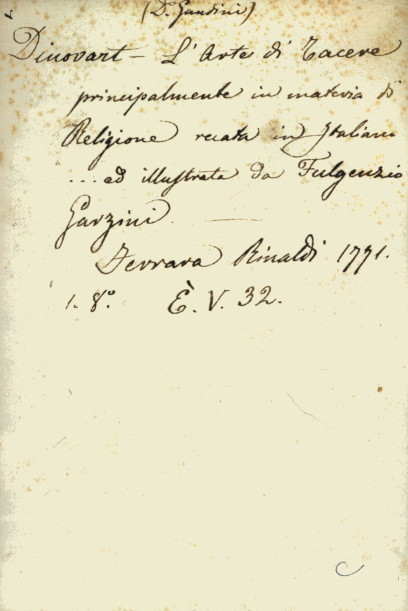 (Dr. Gandini)
Dinovart – L'Arte di Tacere
principalmente in materia di
Religione recata in Italiano
... ed illustrata da Fulgenzio
Garzini.
Ferrara Rinaldi 1771.
1. 8°. È. V. 32.